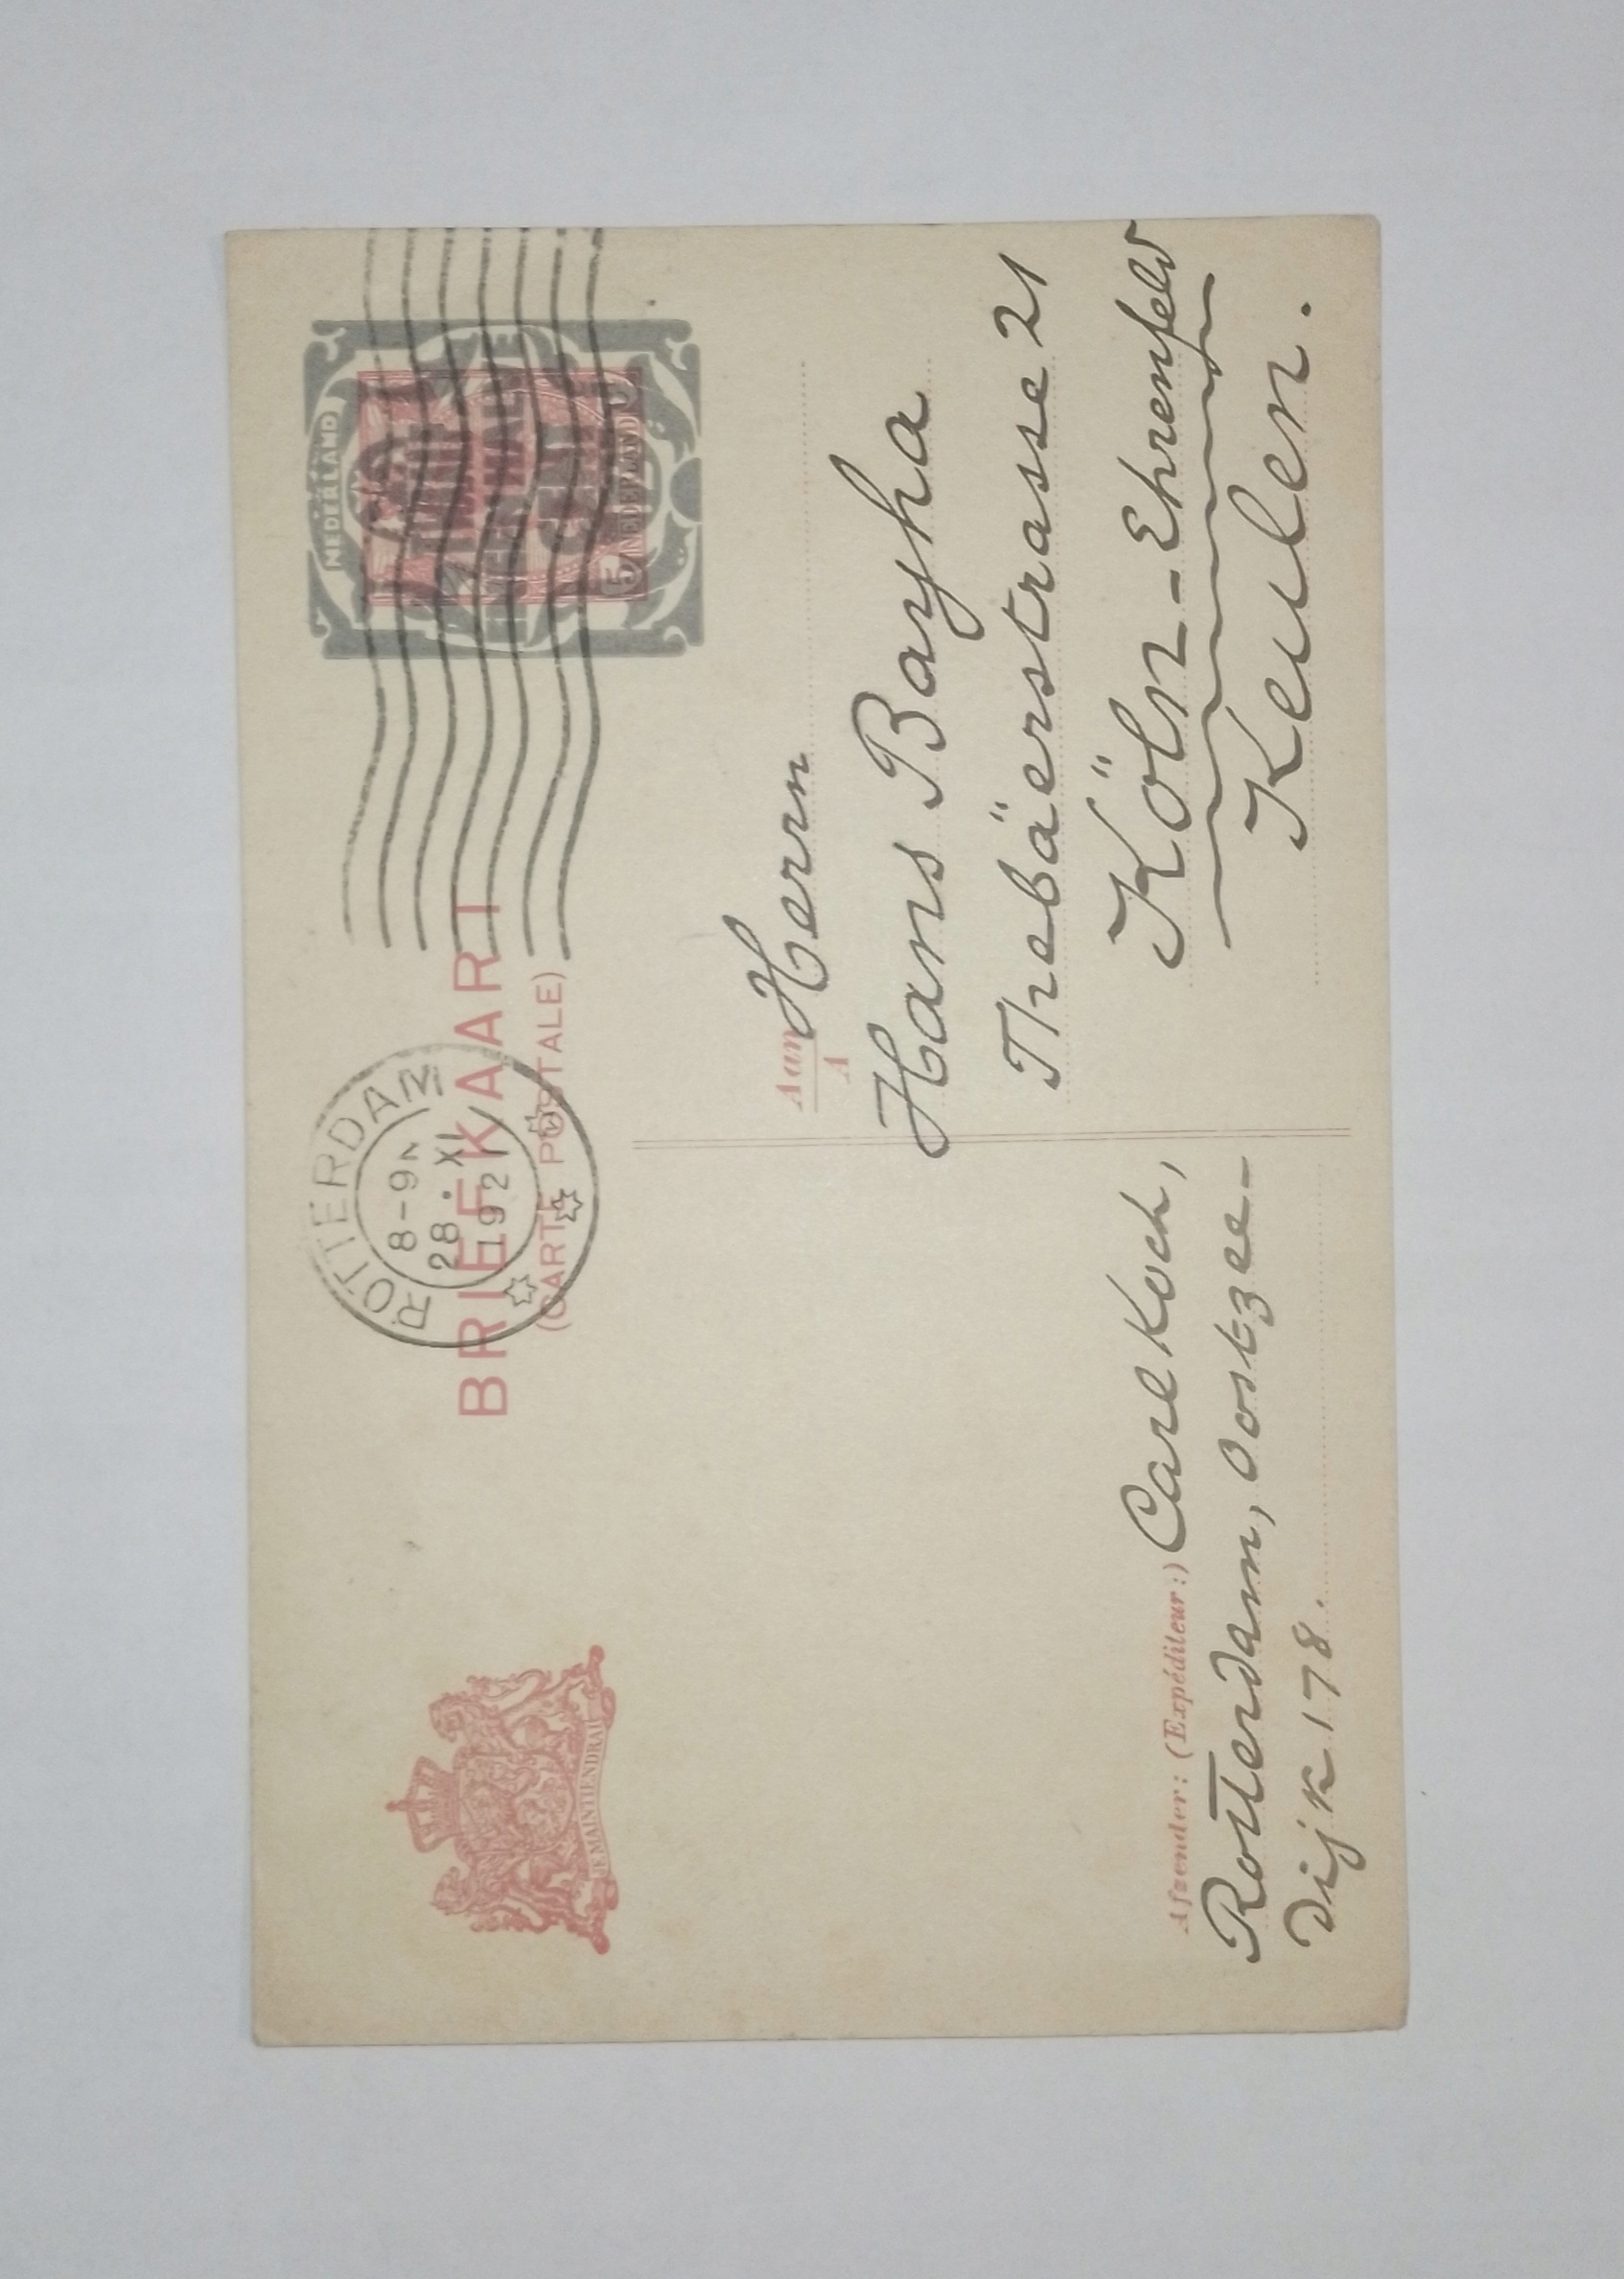 JE MAINTIENDRAI
BRIEFKAART
(CARTE POSTALE)
ROTTERDAM
8-9N
28.XI
1921
NEDERLAND
5 NEDERLAND
CENT
Aan
A
Herrn
Hans Bayha
Thebäerstrasse 21
Köln-Ehrenfeld
Keulen.
Afzender: (Expéditeur:) Carl Koch,
Rotterdam, Oostzee-
dijk 178.